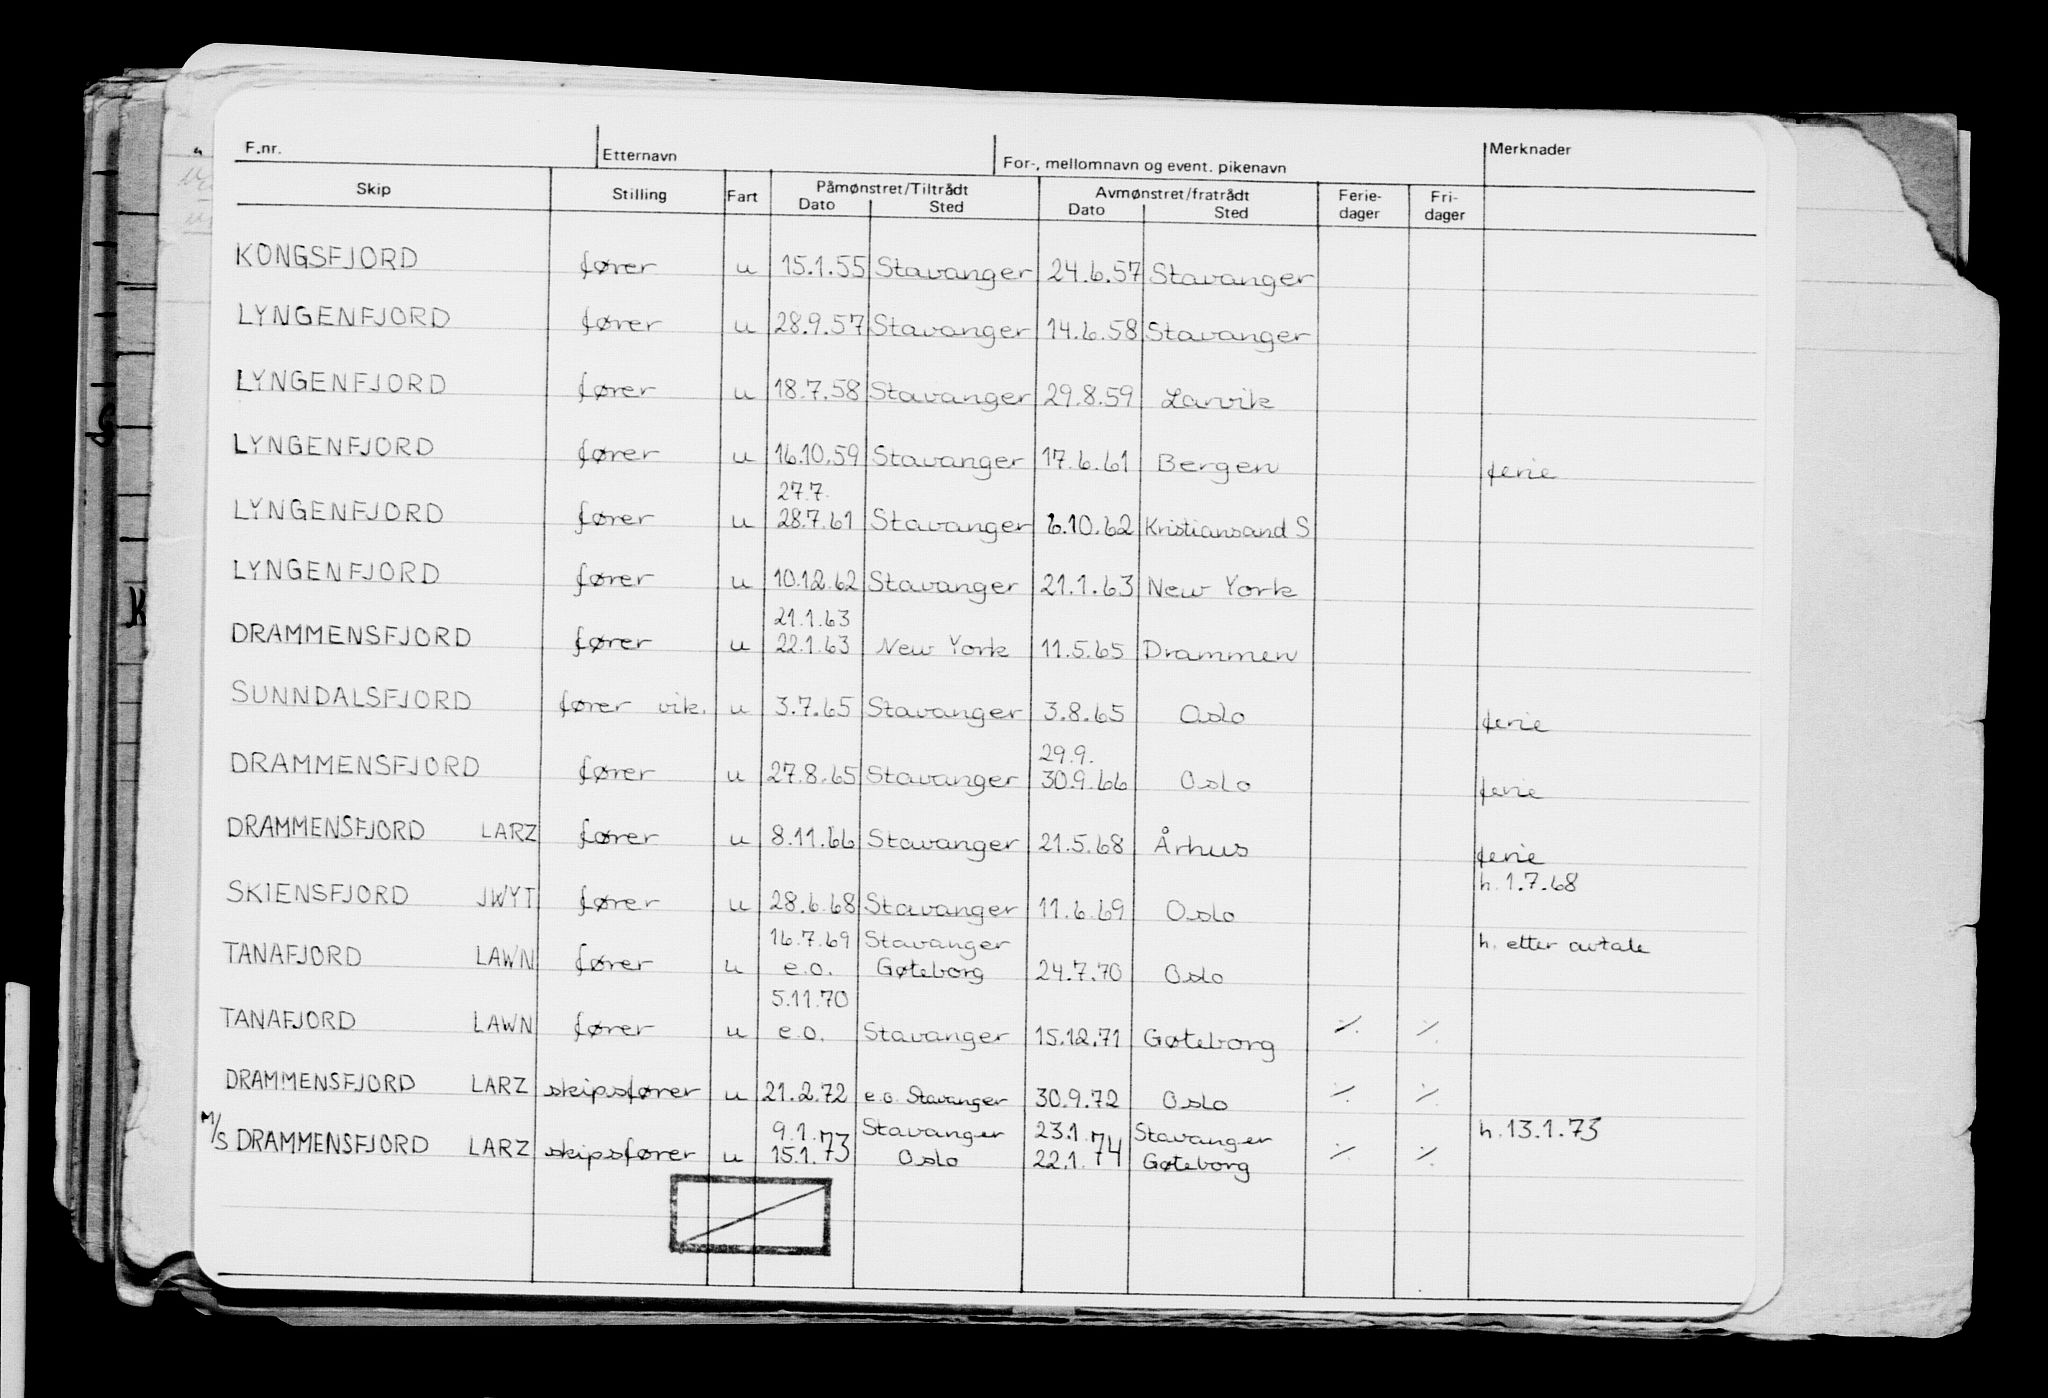 F.nr. Etternavn For-, mellomnavn og event. pikenavn Merknader
Skip Stilling Fart Påmønstret/Tiltrådt Avmønstret/fratrådt Ferie- Fri-
Dato Sted Dato Sted dager dager
KONGSFJORD fører u 15.1.55 Stavanger 24.6.57 Stavanger
LYNGENFJORD fører u 28.9.57 Stavanger 14.6.58 Stavanger
LYNGENFJORD fører u 18.7.58 Stavanger 29.8.59 Larvik
LYNGENFJORD fører u 16.10.59 Stavanger 17.6.61 Bergen ferie
27.7.
LYNGENFJORD fører u 28.7.61 Stavanger 6.10.62 Kristiansand S
LYNGENFJORD fører u 10.12.62 Stavanger 21.1.63 New York
21.1.63
DRAMMENSFJORD fører u 22.1.63 New York 11.5.65 Drammen
SUNNDALSFJORD fører vik. u 3.7.65 Stavanger 3.8.65 Oslo ferie
29.9.
DRAMMENSFJORD fører u 27.8.65 Stavanger 30.9.66 Oslo ferie
DRAMMENSFJORD LARZ fører u 8.11.66 Stavanger 21.5.68 Århus ferie
h. 1.7.68
SKIENSFJORD JWYT fører u 28.6.68 Stavanger 11.6.69 Oslo
16.7.69 Stavanger h. etter avtale
TANAFJORD LAWN fører u e.o. Gøteborg 24.7.70 Oslo
5.11.70
TANAFJORD LAWN fører u e.o. Stavanger 15.12.71 Gøteborg ٪ ٪
DRAMMENSFJORD LARZ skipsfører u 21.2.72 e.o. Stavanger 30.9.72 Oslo ٪ ٪
9.1. Stavanger 23.1. Stavanger h. 13.1.73
M/S DRAMMENSFJORD LARZ skipsfører u 15.1.73 Oslo 22.1.74 Gøteborg ٪ ٪